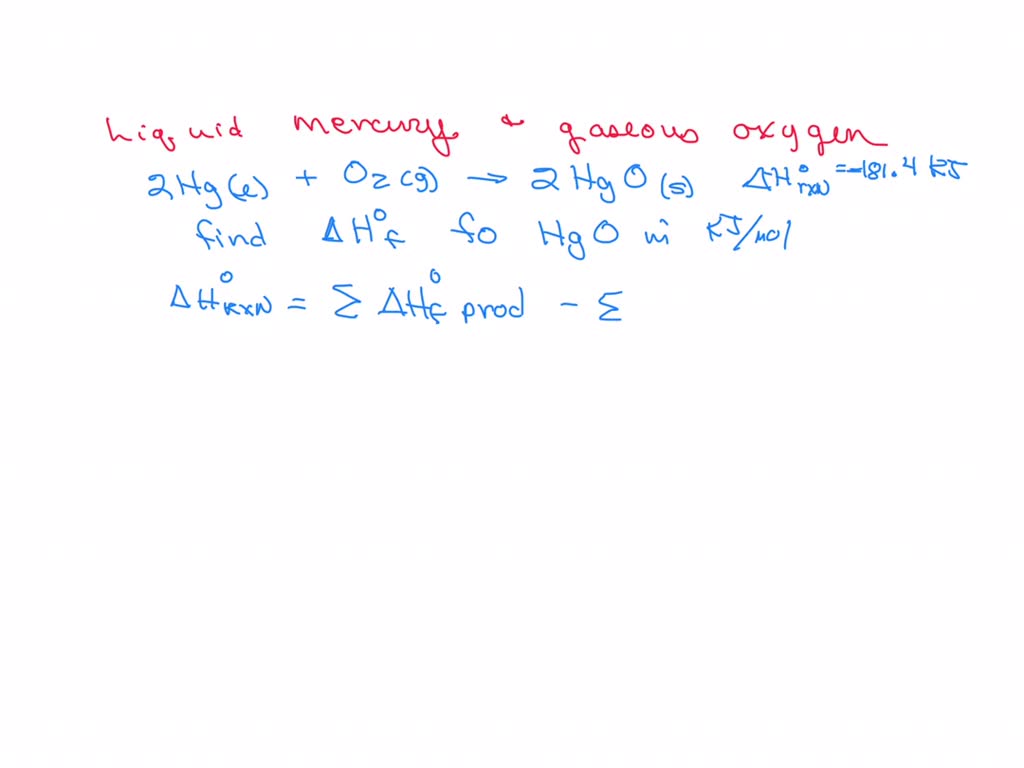 Liquid mercury & gaseous oxygen
2Hg(l) + O2(g) → 2HgO(s) ΔH°rxN = -181.4 kJ
find ΔH°f fo HgO in kJ/mol
ΔH°RxN = Σ ΔH°f prod - Σ